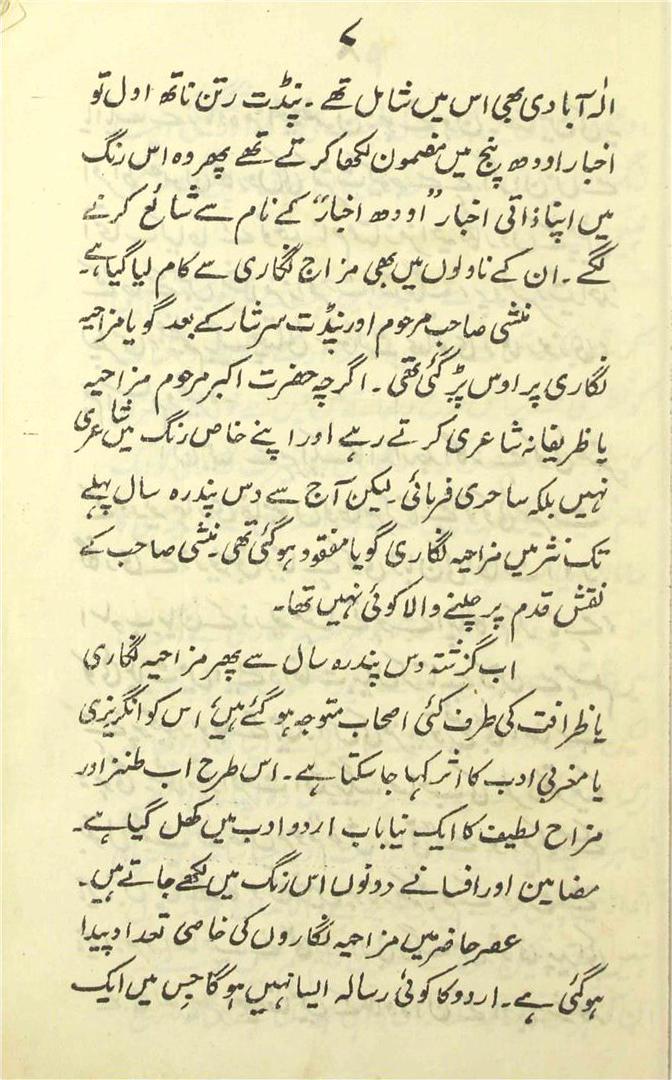 ۷
الٰہ آبادی بھی اس میں شامل تھے ۔ پنڈت رتن ناتھ اول تو
اخبار اودھ پنچ میں مضمون لکھا کرتے تھے پھر وہ اس رنگ
میں اپنا ذاتی اخبار "اودھ اخبار" کے نام سے شائع کرنے
لگے ۔ ان کے ناولوں میں بھی مزاح نگاری سے کام لیا گیا ہے۔
منشی صاحب مرحوم اور پنڈت سرشار کے بعد گویا مزاحیہ
نگاری پر اوس پڑ گئی تھی ۔ اگرچہ حضرت اکبر مرحوم مزاحیہ
یا ظریفانہ شاعری کرتے رہے اور اپنے خاص رنگ میں شاعری
نہیں بلکہ ساحری فرمائی لیکن آج سے دس پندرہ سال پہلے
تک نثر میں مزاحیہ نگاری گویا مفقود ہو گئی تھی ۔ منشی صاحب کے
نقش قدم پر چلنے والا کوئی نہیں تھا۔
اب گزشتہ دس پندرہ سال سے پھر مزاحیہ نگاری
یا ظرافت کی طرف کئی اصحاب متوجہ ہو گئے ہیں، اس کو انگریزی
یا مغربی ادب کا اثر کہا جا سکتا ہے ۔ اس طرح اب طنز اور
مزاح لطیف کا ایک نیا باب اردو ادب میں کھل گیا ہے۔
مضامین اور افسانے دونوں اس رنگ میں لکھے جاتے ہیں۔
عصر حاضر میں مزاحیہ نگاروں کی خاصی تعداد پیدا
ہو گئی ہے ۔ اردو کا کوئی رسالہ ایسا نہیں ہو گا جس میں ایک